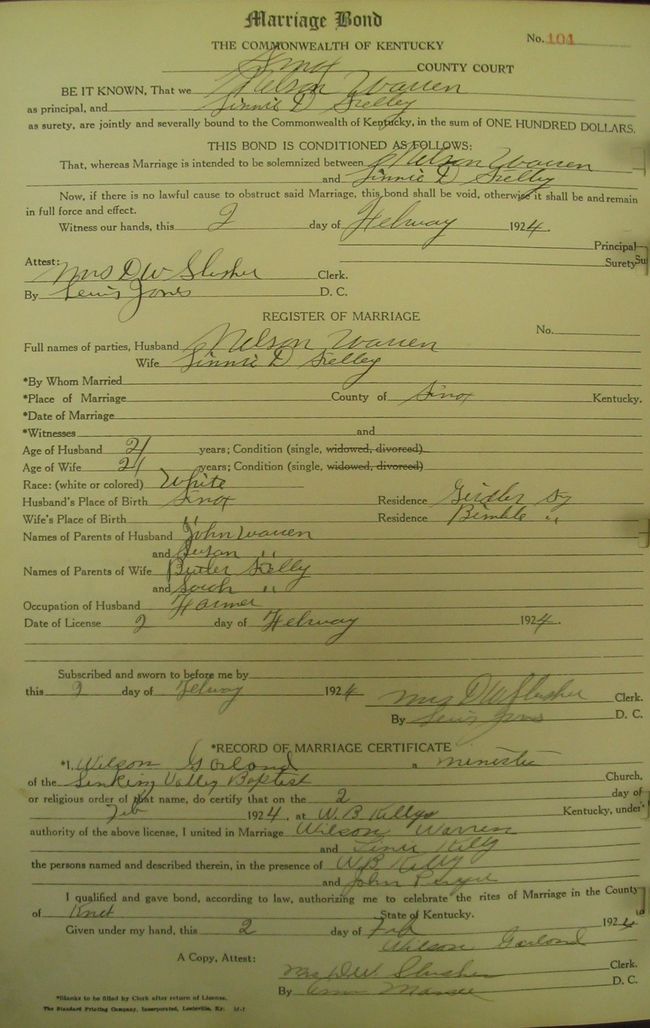 Marriage Bond
No. 101
THE COMMONWEALTH OF KENTUCKY
Knox COUNTY COURT
BE IT KNOWN, That we Nelson Warren
as principal, and Linnie D Kelley
as surety, are jointly and severally bound to the Commonwealth of Kentucky, in the sum of ONE HUNDRED DOLLARS.
THIS BOND IS CONDITIONED AS FOLLOWS:
That, whereas Marriage is intended to be solemnized between Nelson Warren
and Linnie D Kelley
Now, if there is no lawful cause to obstruct said Marriage, this bond shall be void, otherwise it shall be and remain
in full force and effect.
Witness our hands, this 2 day of Febuary 1924.
Principal
Surety
Attest:
Mrs D W Slusher Clerk.
By Lewis Jones D. C.
REGISTER OF MARRIAGE
No.
Full names of parties, Husband Nelson Warren
Wife Linnie D Kelley
*By Whom Married
*Place of Marriage County of Knox Kentucky.
*Date of Marriage
*Witnesses and
Age of Husband 21 years; Condition (single, widowed, divorced)
Age of Wife 21 years; Condition (single, widowed, divorced)
Race: (white or colored) White
Husband's Place of Birth Knox Residence Girdler Ky
Wife's Place of Birth " Residence Bimble "
Names of Parents of Husband John Warren
and Susan "
Names of Parents of Wife Butler Kelly
and Sarah "
Occupation of Husband Farmer
Date of License 2 day of Febuary 1924.
Subscribed and sworn to before me by
this 2 day of Febuary 1924 Mrs D W Slusher Clerk.
By Lewis Jones D. C.
*RECORD OF MARRIAGE CERTIFICATE
*I, Wilson Garland a minister
of the Sinking Valley Baptist Church,
or religious order of that name, do certify that on the 2 day of
Feb 1924, at W. B Kellys Kentucky, under
authority of the above license, I united in Marriage Wilson Warren
and Kelly
the persons named and described therein, in the presence of W B Kelly
and John
I qualified and gave bond, according to law, authorizing me to celebrate the rites of Marriage in the County
of Knox State of Kentucky.
Given under my hand, this 2 day of Feb 1924
Wilson Garland
A Copy, Attest:
Mrs D W Slusher Clerk.
By D. C.
*Blanks to be filled by Clerk after return of License.
The Standard Printing Company, Incorporated, Louisville, Ky.